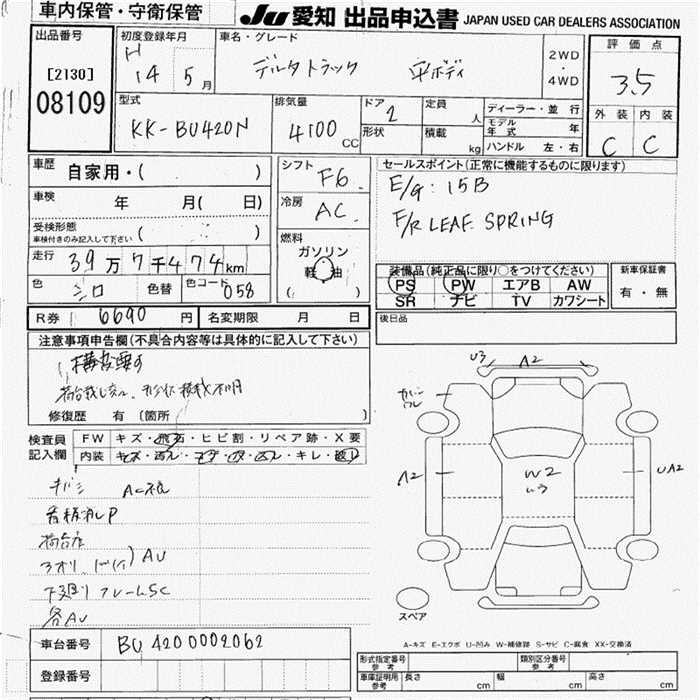 車内保管・守衛保管
JU 愛知 出品申込書 JAPAN USED CAR DEALERS ASSOCIATION
出品番号
[2130]
08109
初度登録年月
H 14 5 月
車名・グレード
デルタトラック 平ボディ
2WD
・
4WD
評価点
3.5
外装 内装
C C
型式
KK-BU420N
排気量
4100 CC
ドア 2
形状
定員 人
積載 kg
ディーラー・並行
モデル年式 年
ハンドル 左・右
車歴 自家用・( )
車検 年 月( 日)
受検形態
車検付きのみ記入して下さい ( )
走行 39万7千474km
色 シロ 色替 色コード 058
シフト F6
冷房 AC
燃料
ガソリン
軽油
( )
セールスポイント(正常に機能するものに限ります)
E/G: 15B
F/R LEAF SPRING
装備品(純正品に限り○をつけてください)
PS PW エアB AW
SR ナビ TV カワシート
新車保証書
有・無
後日品
R券 6690 円 名変期限 月 日
注意事項申告欄(不具合内容等は具体的に記入して下さい)
構変要す
修復歴 有 〔箇所 〕
検査員記入欄
FW キズ・飛石・ヒビ割・リペア跡・X要
内装
キレ
AC
P
AU
下廻り フレームSC
各AU
U3 A2
A2 W2 UA2
スペア
A-キズ E-エクボ U-凹み W-補修跡 S-サビ C-腐食 XX-交換済
車台番号 BU4200002062
登録番号
形式指定番号 参考
類別区分番号 参考
車庫証明用 参考 長さ cm 幅 cm 高さ cm